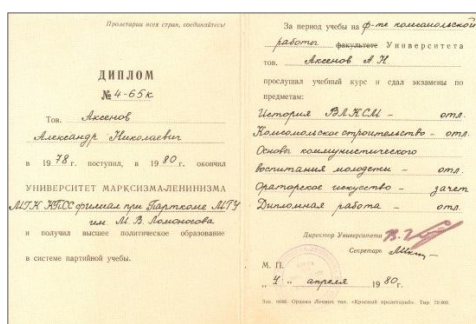 Пролетарии всех стран, соединяйтесь!
ДИПЛОМ
№ 4-65к
Тов. Аксенов
Александр Николаевич
в 1978 г. поступил, в 1980 г. окончил
УНИВЕРСИТЕТ МАРКСИЗМА-ЛЕНИНИЗМА
МГК КПСС филиал при Парткоме МГУ
им. М. В. Ломоносова
и получил высшее политическое образование
в системе партийной учебы.
За период учебы на ф-те комсомольской
работы факультете Университета
тов. Аксенов А Н
прослушал учебный курс и сдал экзамены по
предметам:
История ВЛКСМ – отл.
Комсомольское строительство – отл.
Основы коммунистического
воспитания молодежи – отл.
Ораторское искусство – зачет
Дипломная работа – отл.
Директор Университета
Секретарь
М. П.
„4„ апреля 1980г.
Зак. Ордена Ленина тип. «Красный пролетарий». Тир.